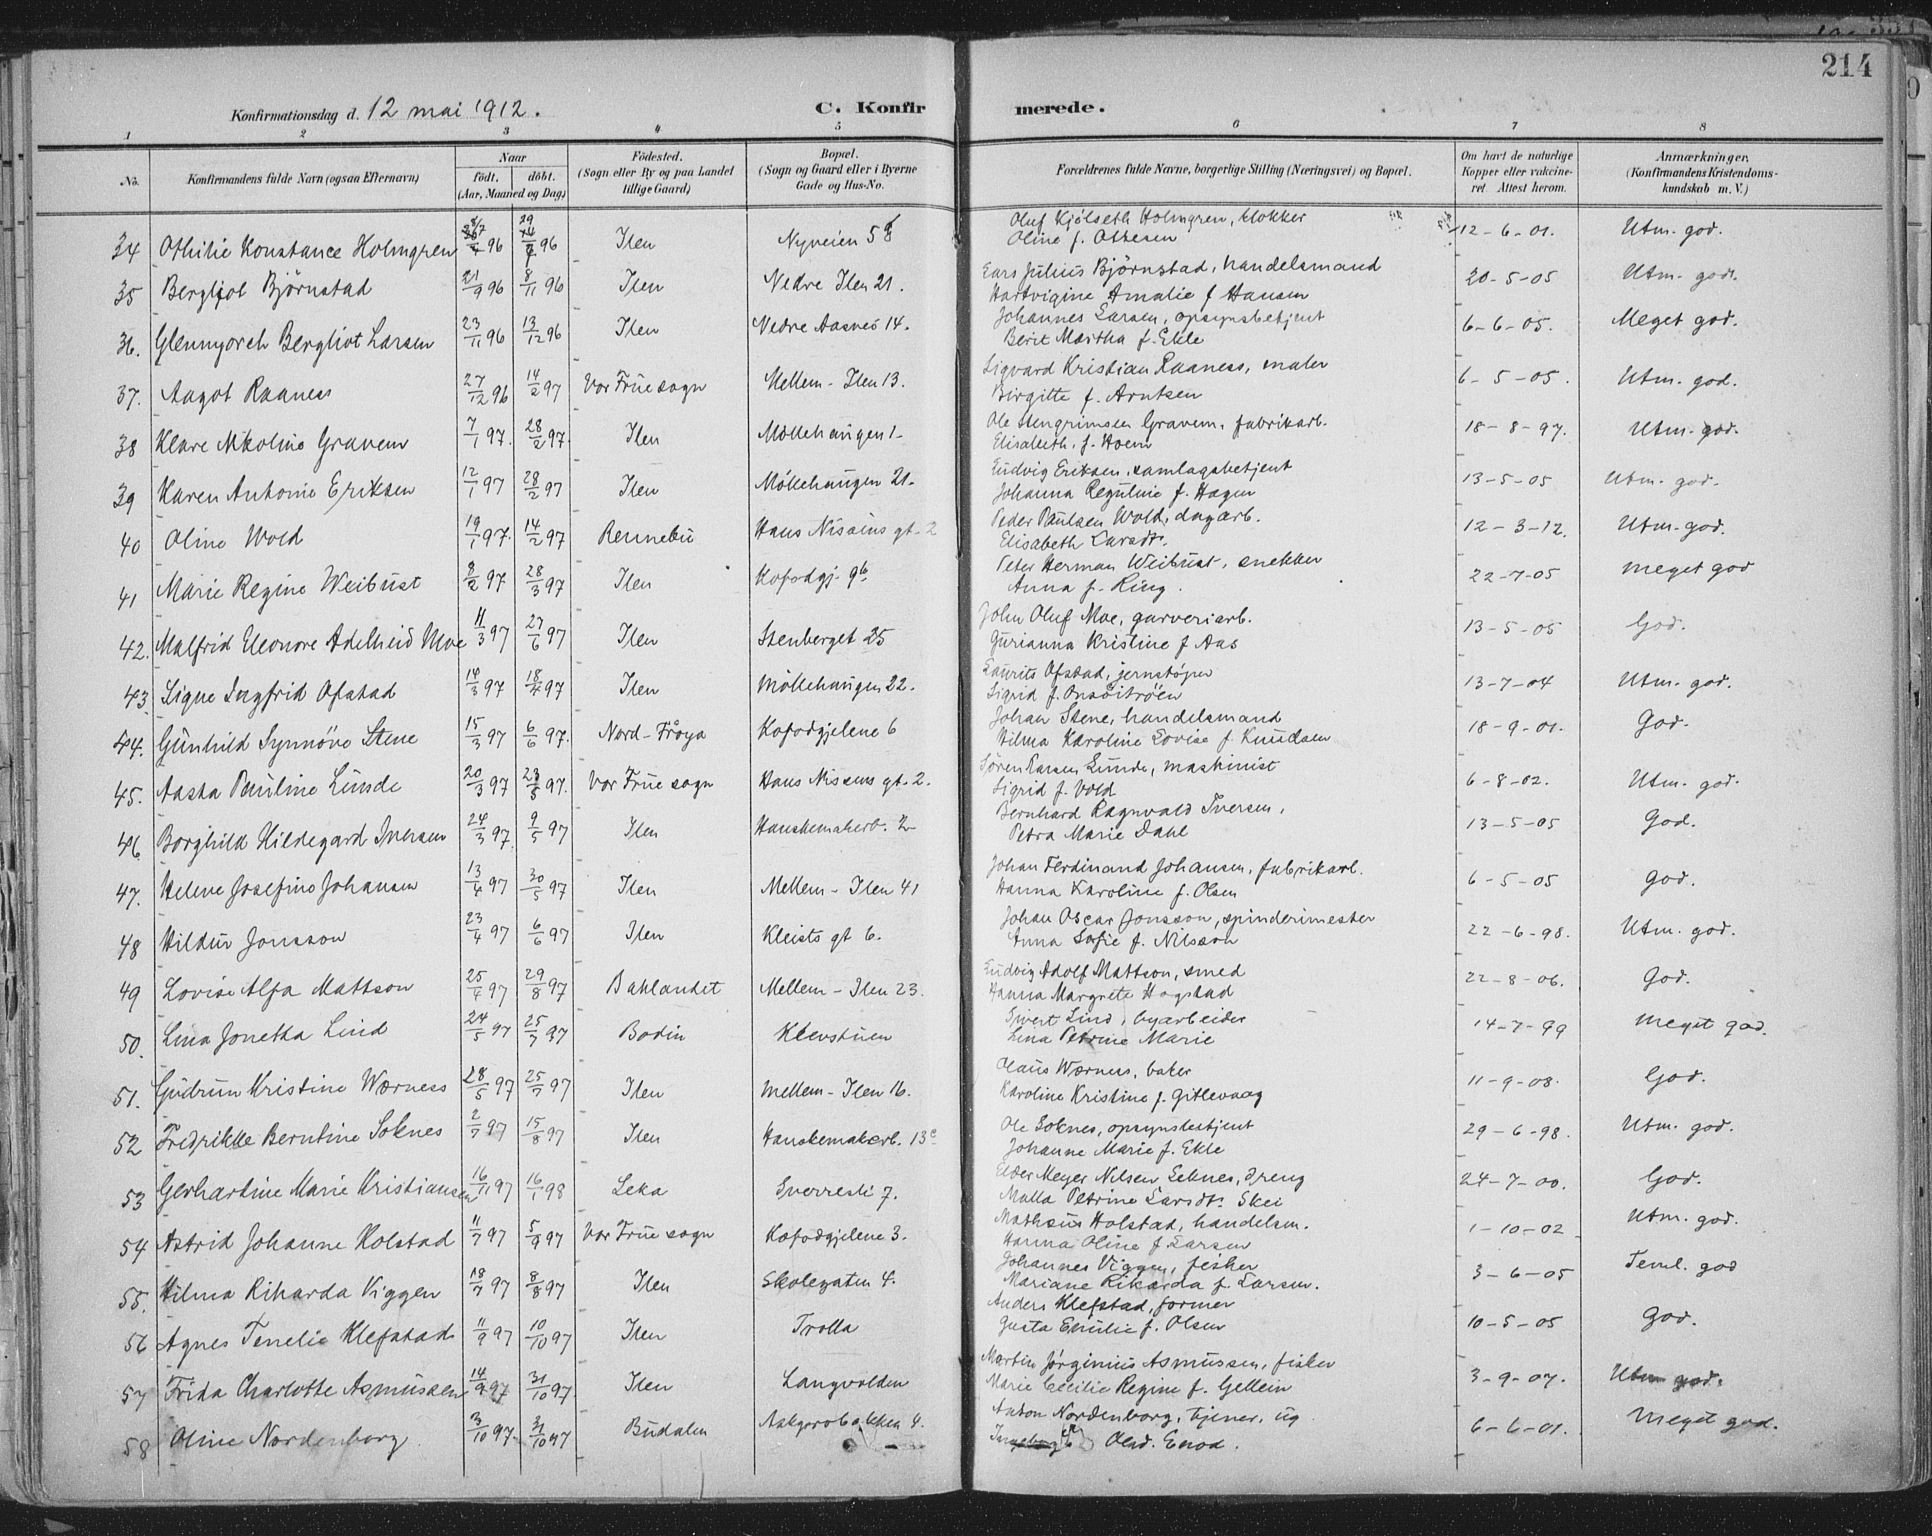 214
Konfirmationsdag d. 12 mai 1912.
C. Konfirmerede.
1 2 3 4 5 6 7 8
No. Konfirmandens fulde Navn (ogsaa Efternavn) Naar født. døbt. (Aar, Maaned og Dag) Fødested. (Sogn eller By og paa Landet tillige Gaard) Bopæl. (Sogn og Gaard eller i Byerne Gade og Hus-No. Forældrenes fulde Navne, borgerlige Stilling (Næringsvei) og Bopæl. Om havt de naturlige Kopper eller vakcineret Attest herom. Anmærkninger. (Konfirmandens Kristendomskundskab m. V.)
34 Othilie Konstance Holmgren 96 96 Ilen Nyveien 58 Oluf Kjølseth Holmgren, klokker 12-6-01. Utm. god.
Oline f. Ottesen
35 Bergljot Bjørnstad 21/9 96 8/11 96 Ilen Nedre Ilen 21. Lars Julius Bjørnstad, handelsmand 20-5-05 Utm. god.
Hartvigine Amalie f Hansen
36. Glennyorch Bergliot Larsen 23/11 96 13/12 96 Ilen Nedre Aasvei 14. Johannes Larsen, opsynsbetjent 6-6-05. Meget god.
Berit Martha f. Ekle
37. Aagot Raaness 27/12 96 14/2 97 Vor Frue sogn Mellem-Ilen 13. Sigvard Kristian Raaness, maler 6-5-05. Utm. god.
Birgitte f. Arntsen
38 Klare Nikoline Gravem 7/1 97. 28/2 97. Ilen Møllehaugen 1- Ole Stengrimsen Gravem, fabrikarb. 18-8-97. Utm. god.
Elisabeth f. Hoem
39 Karen Antonie Eriksen 12/1 97 28/2 97 Ilen Møllehaugen 21. Ludvig Eriksen, samlagsbetjent 13-5-05 Utm. god.
Johanna Reguline f. Hagen
40 Oline Wold 19/1 97. 14/2 97 Rennebu Hans Nissens gt. 2 Peder Paulsen Wold, dagarb. 12-3-12. Utm. god.
Elisabeth Larsdt.
41 Marie Regine Weibust 8/2 97. 28/3 97 Ilen Kofodgj. 9b Peter Herman Weibust, snekker 22-7-05 Meget god
Anna f. Ring.
42. Malfrid Eleonore Adelheid Moe 11/3 97 27/6 97 Ilen Stenberget 25 John Oluf Moe, garveriarb. 13-5-05 God.
Gurianna Kristine f Aas
43. Signe Ingfrid Ofstad 14/3 97 18/4 97 Ilen Møllehaugen 22. Laurits Ofstad, jernstøper 13-7-04 Utm. god.
Sigrid f.
44. Gunhild Synnøve Stene 15/3 97 6/6 97. Nord-Frøya Kofodgjelene 6 Johan Stene, handelsmand 18-9-01. God.
Hilma Karoline Lovise f Knudsen
45. Aasta Pauline Lunde 20/3 97 97. Vor Frue sogn Hans Nissens gt. 2. Søren Larsen Lunde, maskinist 6-8-02. Utm. god.
Sigrid f. Vold
46. Borghild Hildegard Iversen 24/3 97. 9/5 97 Ilen Hanskemakerb. 2 Bernhard Ragnvald Iversen, 13-5-05 God.
Petra Marie Dahl
47. Helene Josefine Johansen 13/4 97 30/5 97 Ilen Mellem-Ilen 41 Johan Ferdinand Johansen, fabrikarb. 6-5-05 God.
Hanna Karoline f. Olsen
48 Hildur Jonsson 23/4 97 6/6 97 Ilen Kleists gt 6. Johan Oscar Jonsson, spinderimester 22-6-98. Utm. god.
Anna Sofie f. Nilsson
49 Lovise Alfa Mattson 25/4 97 29/8 97 Baklandet Mellem-Ilen 23. Ludvig Adolf Mattson, smed 22-8-06. God.
Hanna Margrete Hogstad
50. Lina Jonetha Lind 24/5 97 25/7 97 Bodin Klevstuen Sivert Lind, byarbeider 14-7-99 Meget god.
Lina Petrine Marie
51. Gudrun Kristine Wærness 28/5 97 25/7 97 Ilen Mellem-Ilen 16. Olaus Wærness, baker 11-9-08. God.
Karoline Kristine f. Gitlevaag
52 Fredrikke Berntine Soknes 2/7 97 15/8 97 Ilen Hanskemakerb. 13c Ole Soknes, opsynsbetjent 29-6-98. Utm. god.
Johanne Marie f. Ekle
53 Gerhartine Marie Kristiansen 16/11 97 16/1 98 Leka Sverresli 7. Elder Meyer Nilsen Leknes, dreng 24-7-00. God.
Malla Petrine Larsdt. Skei
54 Astrid Johanne Holstad 11/7 97 5/9 97 Vor Frue sogn Kofodgjelene 3. Matheus Holstad, handelsm. 1-10-02 Utm. god.
Hanna Oline f Larsen
55. Hilma Rikarda Viggen 18/7 97 8/8 97 Ilen Skolegaten 4. Johannes Viggen, fisker 3-6-05 Teml. god
Mariane Rikarda f. Larsen.
56 Agnes Tenelie Klefstad 11/9 97 10/10 97 Ilen Trolla Anders Klefstad, former 10-5-05 God.
Gusta Emilie f. Olsen
57 Frida Charlotte Asmussen 14/9 97 31/10 97. Ilen Langvolden Martin Jørginius Asmussen, fisker 3-9-07. Utm god.
Marie Cecilie Regine f. Gellein
58 Oline Nordenborg 3/10 97. 31/10 97 Budalen 4. Anton Nordenborg, tjener, ug 6-6-01. Meget god.
Ingeborg Olsd. Enod.